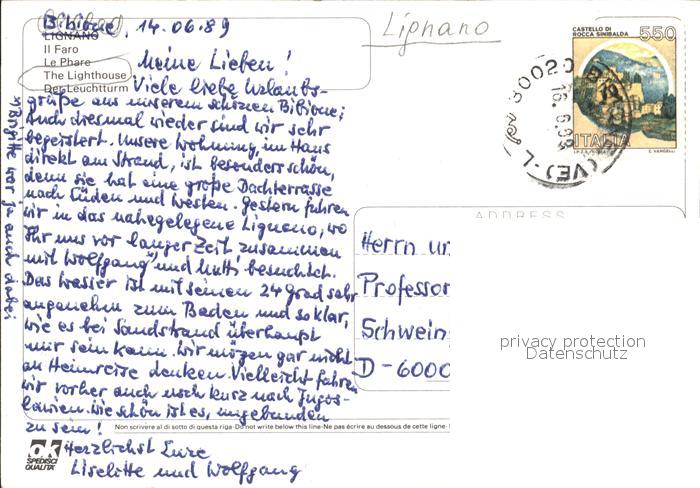 Bibione, 14.06.89
LIGNANO
Il Faro
Le Phare
The Lighthouse
Der Leuchtturm
Meine Lieben!
Viele liebe Urlaubs-
grüße aus unserem schönen Bibione;
Auch diesmal wieder sind wir sehr
begeistert. Unsere Wohnung, im Haus
direkt am Strand, ist besonders schön,
denn sie hat eine große Dachterrasse
nach Süden und Westen. Gestern fuhren
wir in das nahegelegene Lignano, wo
Ihr uns vor langer Zeit zusammen
mit Wolfgang und Mutti besuchtet.
Das Wasser ist mit seinen 24 Grad sehr
angenehm zum Baden und so klar,
wie es bei Sandstrand überhaupt
nur sein kann. Wir mögen gar nicht
an Heimreise denken. Vielleicht fahren
wir vorher auch noch kurz nach Jugos-
lawien. Wie schön ist es, ungebunden
zu sein!
Herzlichst Eure
Liselotte und Wolfgang
Brigitte war ja auch dabei
Lignano
CASTELLO DI
ROCCA SINIBALDA
550
ITALIA
I.P.Z.S. ROMA
E. VANGELLI
30020
16.6.89
(VE)
ADDRESS
Herrn un
Professor
Schwein
D-6000
privacy protection
Datenschutz
Non scrivere al di sotto di questa riga-Do not write below this line-Ne pas écrire au dessous de cette ligne-
ak
SPEDISCI
QUALITA'